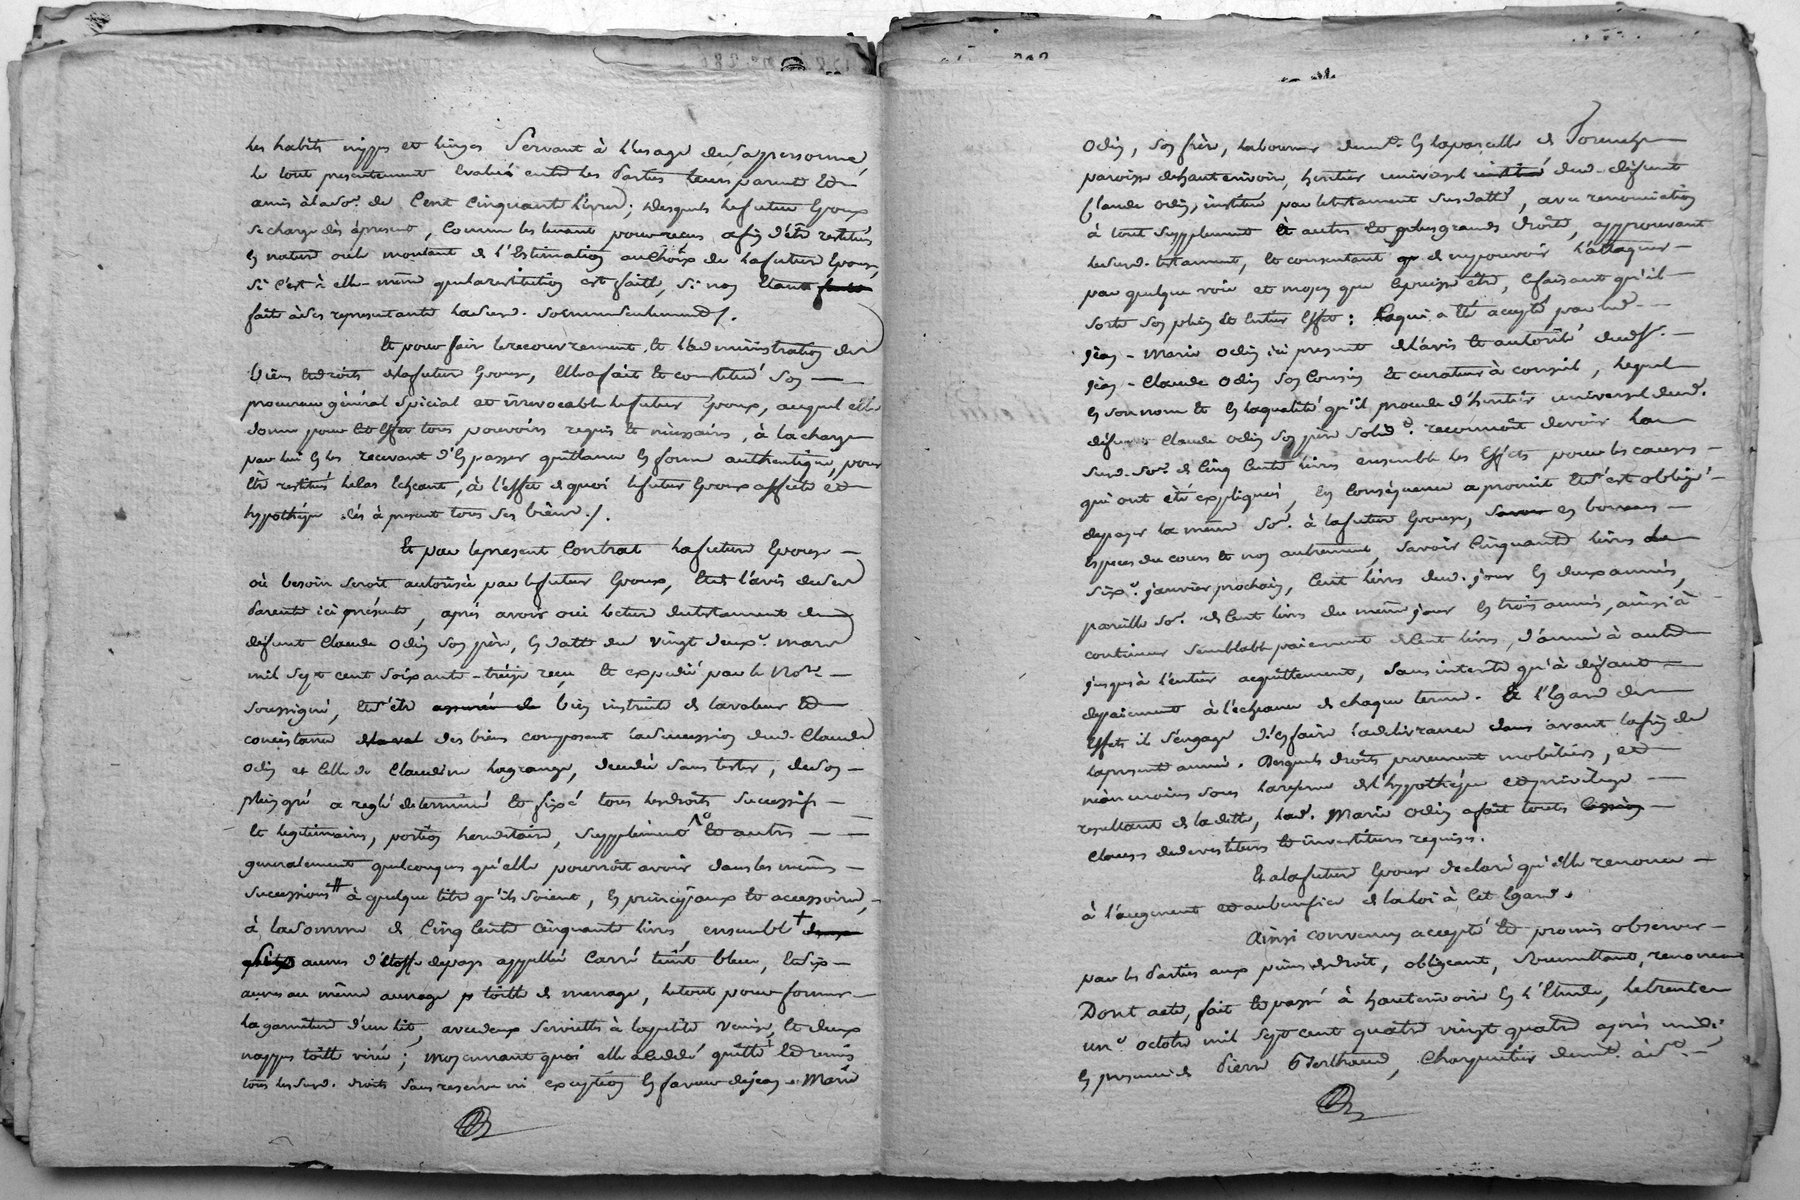 ses habits nippes et linges servant à l'usage de sa personne,
le tout presentement evalué entre les parties leurs parents et
amis à la so.e de Cent cinquante livres; desquels le futur Epoux
se charge dès à present, comme les tenant pour reçus afin d'être restitués
en nature ou le montant de l'Estimation au choix de la future Epouse,
si c'est à elle-même que la restitution est faite, si non étant
faite à ses representants lasusd. somme seulement /.
Et pour faire le recouvrement et l'administration des
biens et droits de la future Epouse, elle a fait et constitué son
procureur général spécial et irrevocable le futur Epoux, auquel elle
donne pour cet effet tous pouvoirs requis et necessaires, à la charge
par lui en les recevant d'en passer quittance en forme authentique, pour
être restitués le cas échéant, à l'effet de quoi le futur Epoux affecte et
hypothéque dès à present tous ses biens /.
Et par le present Contrat la future Epouse
où besoin seroit autorisée par le futur Epoux, et de l'avis de ses
Parents ici présents, après avoir oui lecture du testament du
défunt Claude Odin son père, en datte du vingt deux.e mars
mil sept cent soixante-treize reçu et expédié par le No.re
soussigné, et s'être assurée de bien instruite de la valeur et
consistance de la val des biens composant la succession dud. Claude
Odin et celle de Claudine Lagrange, decedée sans tester, de son
plein gré a reglé determiné et fixé tous ses droits successifs
et legitimaires, portion hereditaire, supplément et autres
generalement quelconques qu'elle pourroit avoir dans les mêmes
successions # à quelque titre qu'ils soient, en principaux et accessoires,
à la somme de Cinq cents cinquante livres, ensemble +
aunes d'étoffe depays appellée Carré teint bleu, et six
aunes au même aunage toille de menage, le tout pour former
la garniture d'un lit, avec deux serviettes à la petite venise, et deux
nappes toille virée; moyennant quoi elle a cedé quitté et remis
tous lesusd. droits sans reserve ni exception en faveur de Jean-Marie
Odin, son frère, laboureur demt. en la parcelle de
paroisse de hauterivoire, heritier universel institué dud. défunt
Claude Odin, institué par le testament susdatté, avec renonciation
à tout supplement et autres et plus grands droits, approuvant
lesusd. testament, et consentant de ne pouvoir l'attaquer
par quelque voie et moyen que ce puisse être, et faisant qu'il
sorte son plein et entier effet: ce qui a été accepté par led.
Jean-Marie Odin ici present de l'avis et autorité dud. s.r
Jean-Claude Odin son Cousin et curateur à conseil, lequel
en son nom et en la qualité qu'il procede d'heritier universel dud.
défunt Claude Odin son père solid.e reconnoît devoir la
susd. so.e de Cinq cents livres ensemble les effets pour les causes
qui ont été expliquées, en conséquence a promit et s'est obligé
de payer la même so.e à la future Epouse, savoir en bonnes
especes du cours et non autrement, savoir Cinquante livres le
six.e janvier prochain, Cent livres dud. jour en deux années,
pareille so.e de Cent livres du même jour en trois années, ainsi à
continuer semblable paiement de Cent livres, d'année à autre
jusqu'à l'entier acquittement, sans interêts qu'à défaut
de paiement à l'échéance de chaque terme. Et à l'égard des
effets il s'engage d'en faire la delivrance dans avant la fin de
la presente année. Desquels droits purement mobiliers, et
néanmoins sous la reserve de l'hypothéque et privilege
resultant de la dette, lad. Marie Odin a fait toutes
clauses de devestiture et investiture requises.
Et a la future Epouse declaré qu'elle renonce
à l'augment et au benefice de la loi à cet égard.
Ainsi convenu accepté et promis observer
par les Parties aux peines de droit, obligeant, soumettant, renonçant
Dont acte, fait et passé à hauterivoire en l'Etude, le trente
un.e octobre mil sept cent quatre vingt quatre après midi
en presence de Pierre Berthaud, Charpentier demt. à